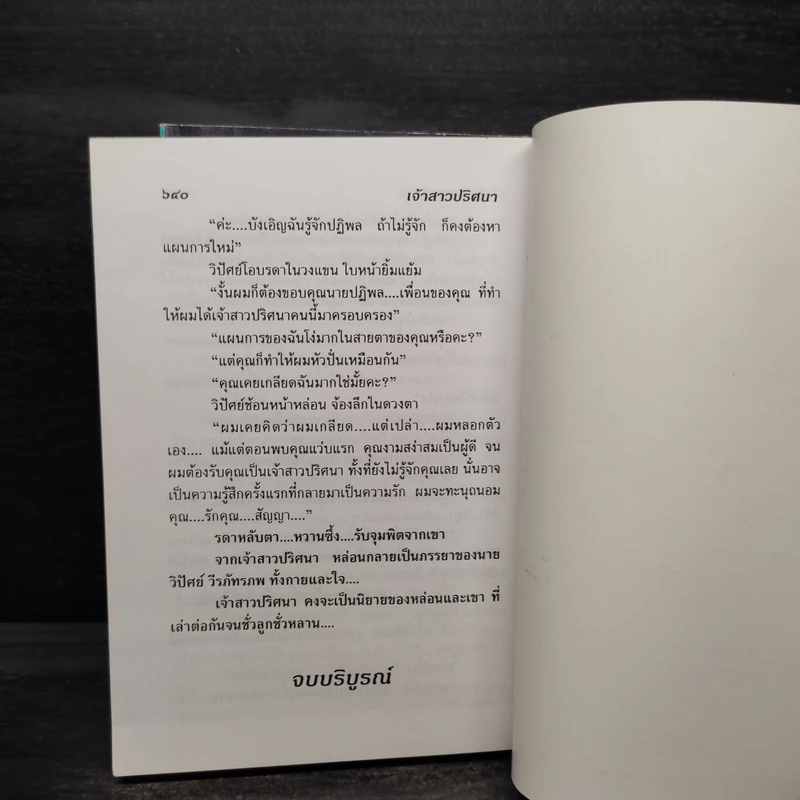 ๖๔๐ เจ้าสาวปริศนา
“ค่ะ....บังเอิญฉันรู้จักปฏิพล ถ้าไม่รู้จัก ก็คงต้องหา
แผนการใหม่”
วิปัศย์โอบรดาในวงแขน ใบหน้ายิ้มแย้ม
“งั้นผมก็ต้องขอบคุณนายปฏิพล....เพื่อนของคุณ ที่ทำ
ให้ผมได้เจ้าสาวปริศนาคนนี้มาครอบครอง”
“แผนการของฉันโง่มากในสายตาของคุณหรือคะ?”
“แต่คุณก็ทำให้ผมหัวปั่นเหมือนกัน”
“คุณเคยเกลียดฉันมากใช่มั้ยคะ?”
วิปัศย์ช้อนหน้าหล่อน จ้องลึกในดวงตา
“ผมเคยคิดว่าผมเกลียด....แต่เปล่า....ผมหลอกตัว
เอง.... แม้แต่ตอนพบคุณแว่บแรก คุณงามสง่าสมเป็นผู้ดี จน
ผมต้องรับคุณเป็นเจ้าสาวปริศนา ทั้งที่ยังไม่รู้จักคุณเลย นั่นอาจ
เป็นความรู้สึกครั้งแรกที่กลายมาเป็นความรัก ผมจะทะนุถนอม
คุณ....รักคุณ....สัญญา....”
รดาหลับตา....หวานซึ้ง....รับจุมพิตจากเขา
จากเจ้าสาวปริศนา หล่อนกลายเป็นภรรยาของนาย
วิปัศย์ วีรภัทรภพ ทั้งกายและใจ....
เจ้าสาวปริศนา คงจะเป็นนิยายของหล่อนและเขา ที่
เล่าต่อกันจนชั่วลูกชั่วหลาน....
จบบริบูรณ์